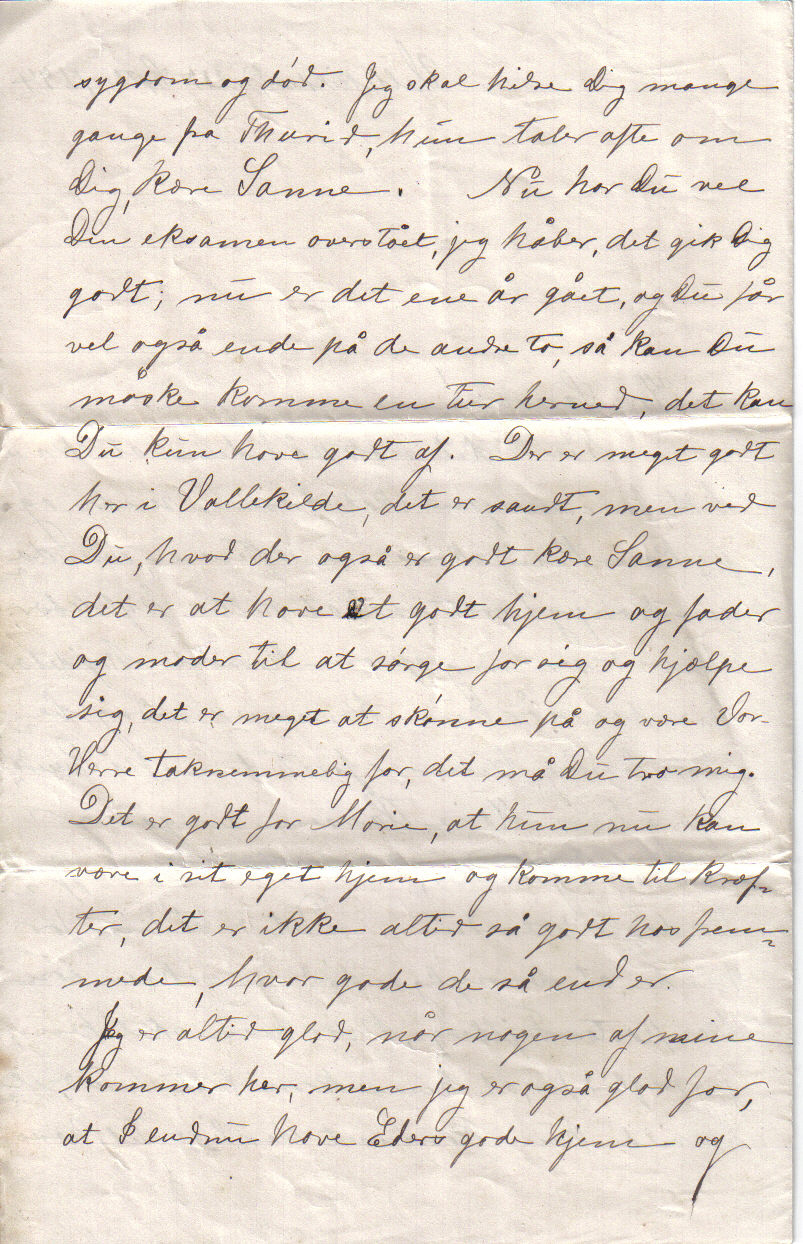 sygdom og død. Jeg skal hilse Dig mange
gange fra Thurid, hun taler ofte om
Dig, kære Sanne. Nu har Du vel
Din eksamen overstået, jeg håber, det gik Dig
godt; nu er det ene år gået, og Du får
vel også ende på de andre to, så kan Du
måske komme en tur herned, det kan
Du kun have godt af. Der er meget godt
her i Vallekilde, det er sandt, men ved
Du, hvad der også er godt kære Sanne,
det er at have et godt hjem og fader
og moder til at sørge for sig og hjælpe
sig, det er meget at skønne på og være Vor-
Herre taknemmelig for, det må Du tro mig.
Det er godt for Marie, at hun nu kan
være i sit eget hjem og komme til kræf=
ter, det er ikke altid så godt hos frem=
mede, hvor gode de så end er.
Jeg er altid glad, når nogen af mine
kommer her, men jeg er også glad for,
at I endnu have Eders gode hjem og